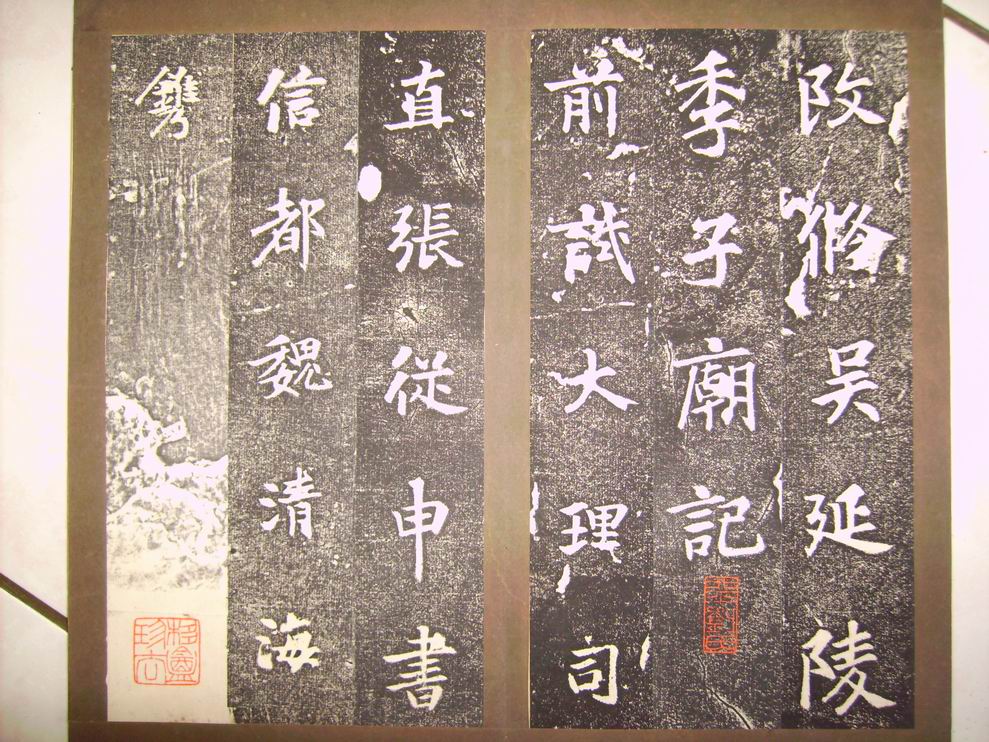 改脩吴延陵
季子廟記
前試大理司
直張從申書
信都魏清海
鐫